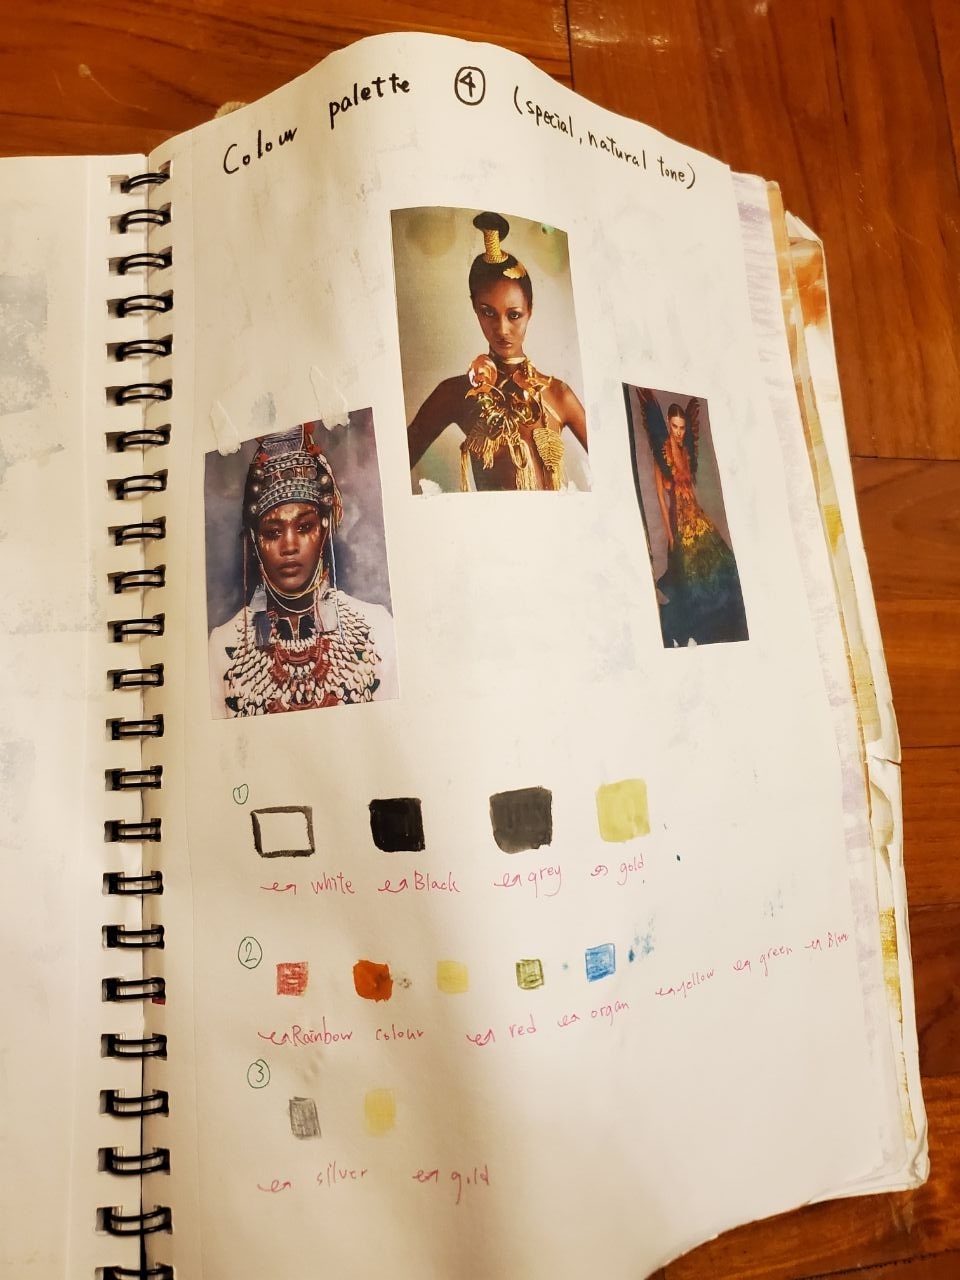 Colour palette ④ (special, natural tone)
①
white Black grey gold
②
Rainbow colour red organ yellow green Blue
③
silver gold